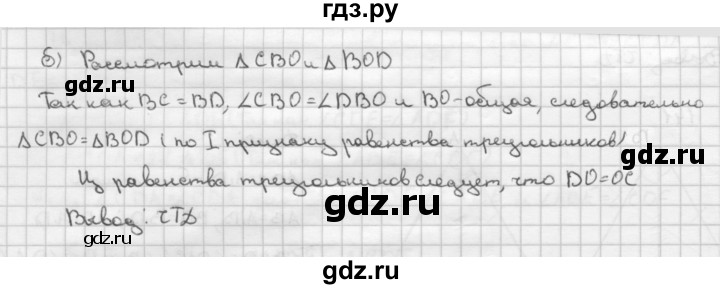 гдз.ру
б) Рассмотрим △CBO и △BOD
gdz.ru
gdz.ru
Так как BC = BD, ∠CBO = ∠DBO и BO - общая, следовательно
△CBO = △BOD (по I признаку равенства треугольников)
Из равенства треугольников следует, что DO = OC
Вывод: ЧТД
gdz.ru
gdz.ru
gdz.ru